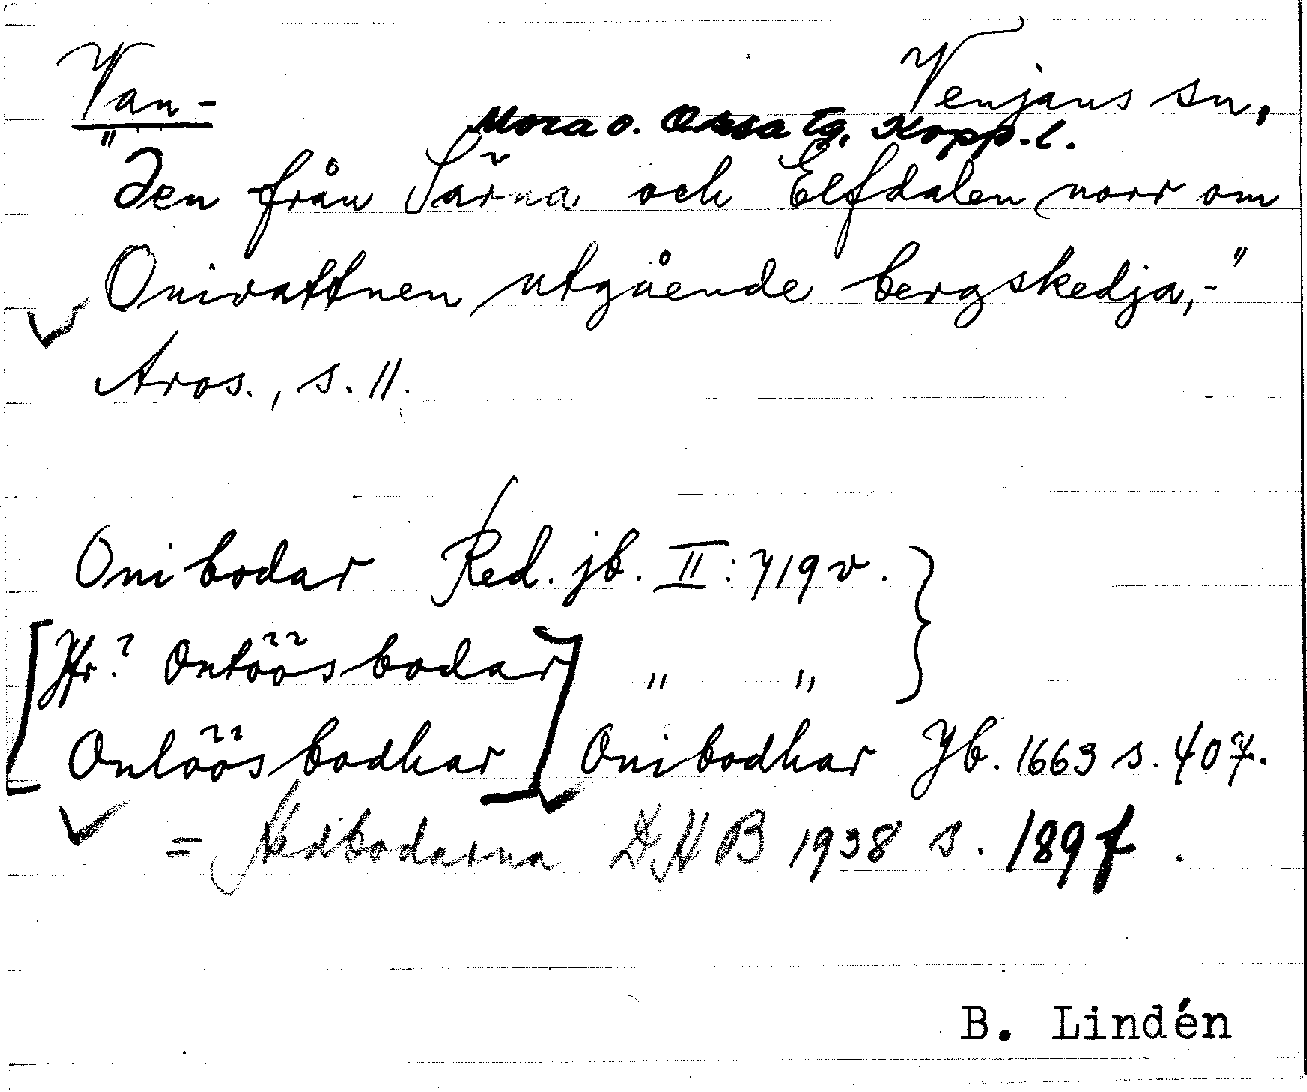 Van- Venjans sn,
Mora o. Orsa tg. Kopp. l.
"Den från Särna och Elfdalen norr om
Onivattnen utgående bergskedja,-"
Aros., s. 11.
Onibodar Red. jb. II: 719 v. }
[Jfr? Onlöösbodar " "
Onlöösbodhar] Onibodhar Jb. 1663 s. 407.
= Nedbodarna DHB 1938 s. 189 f.
B. Lindén